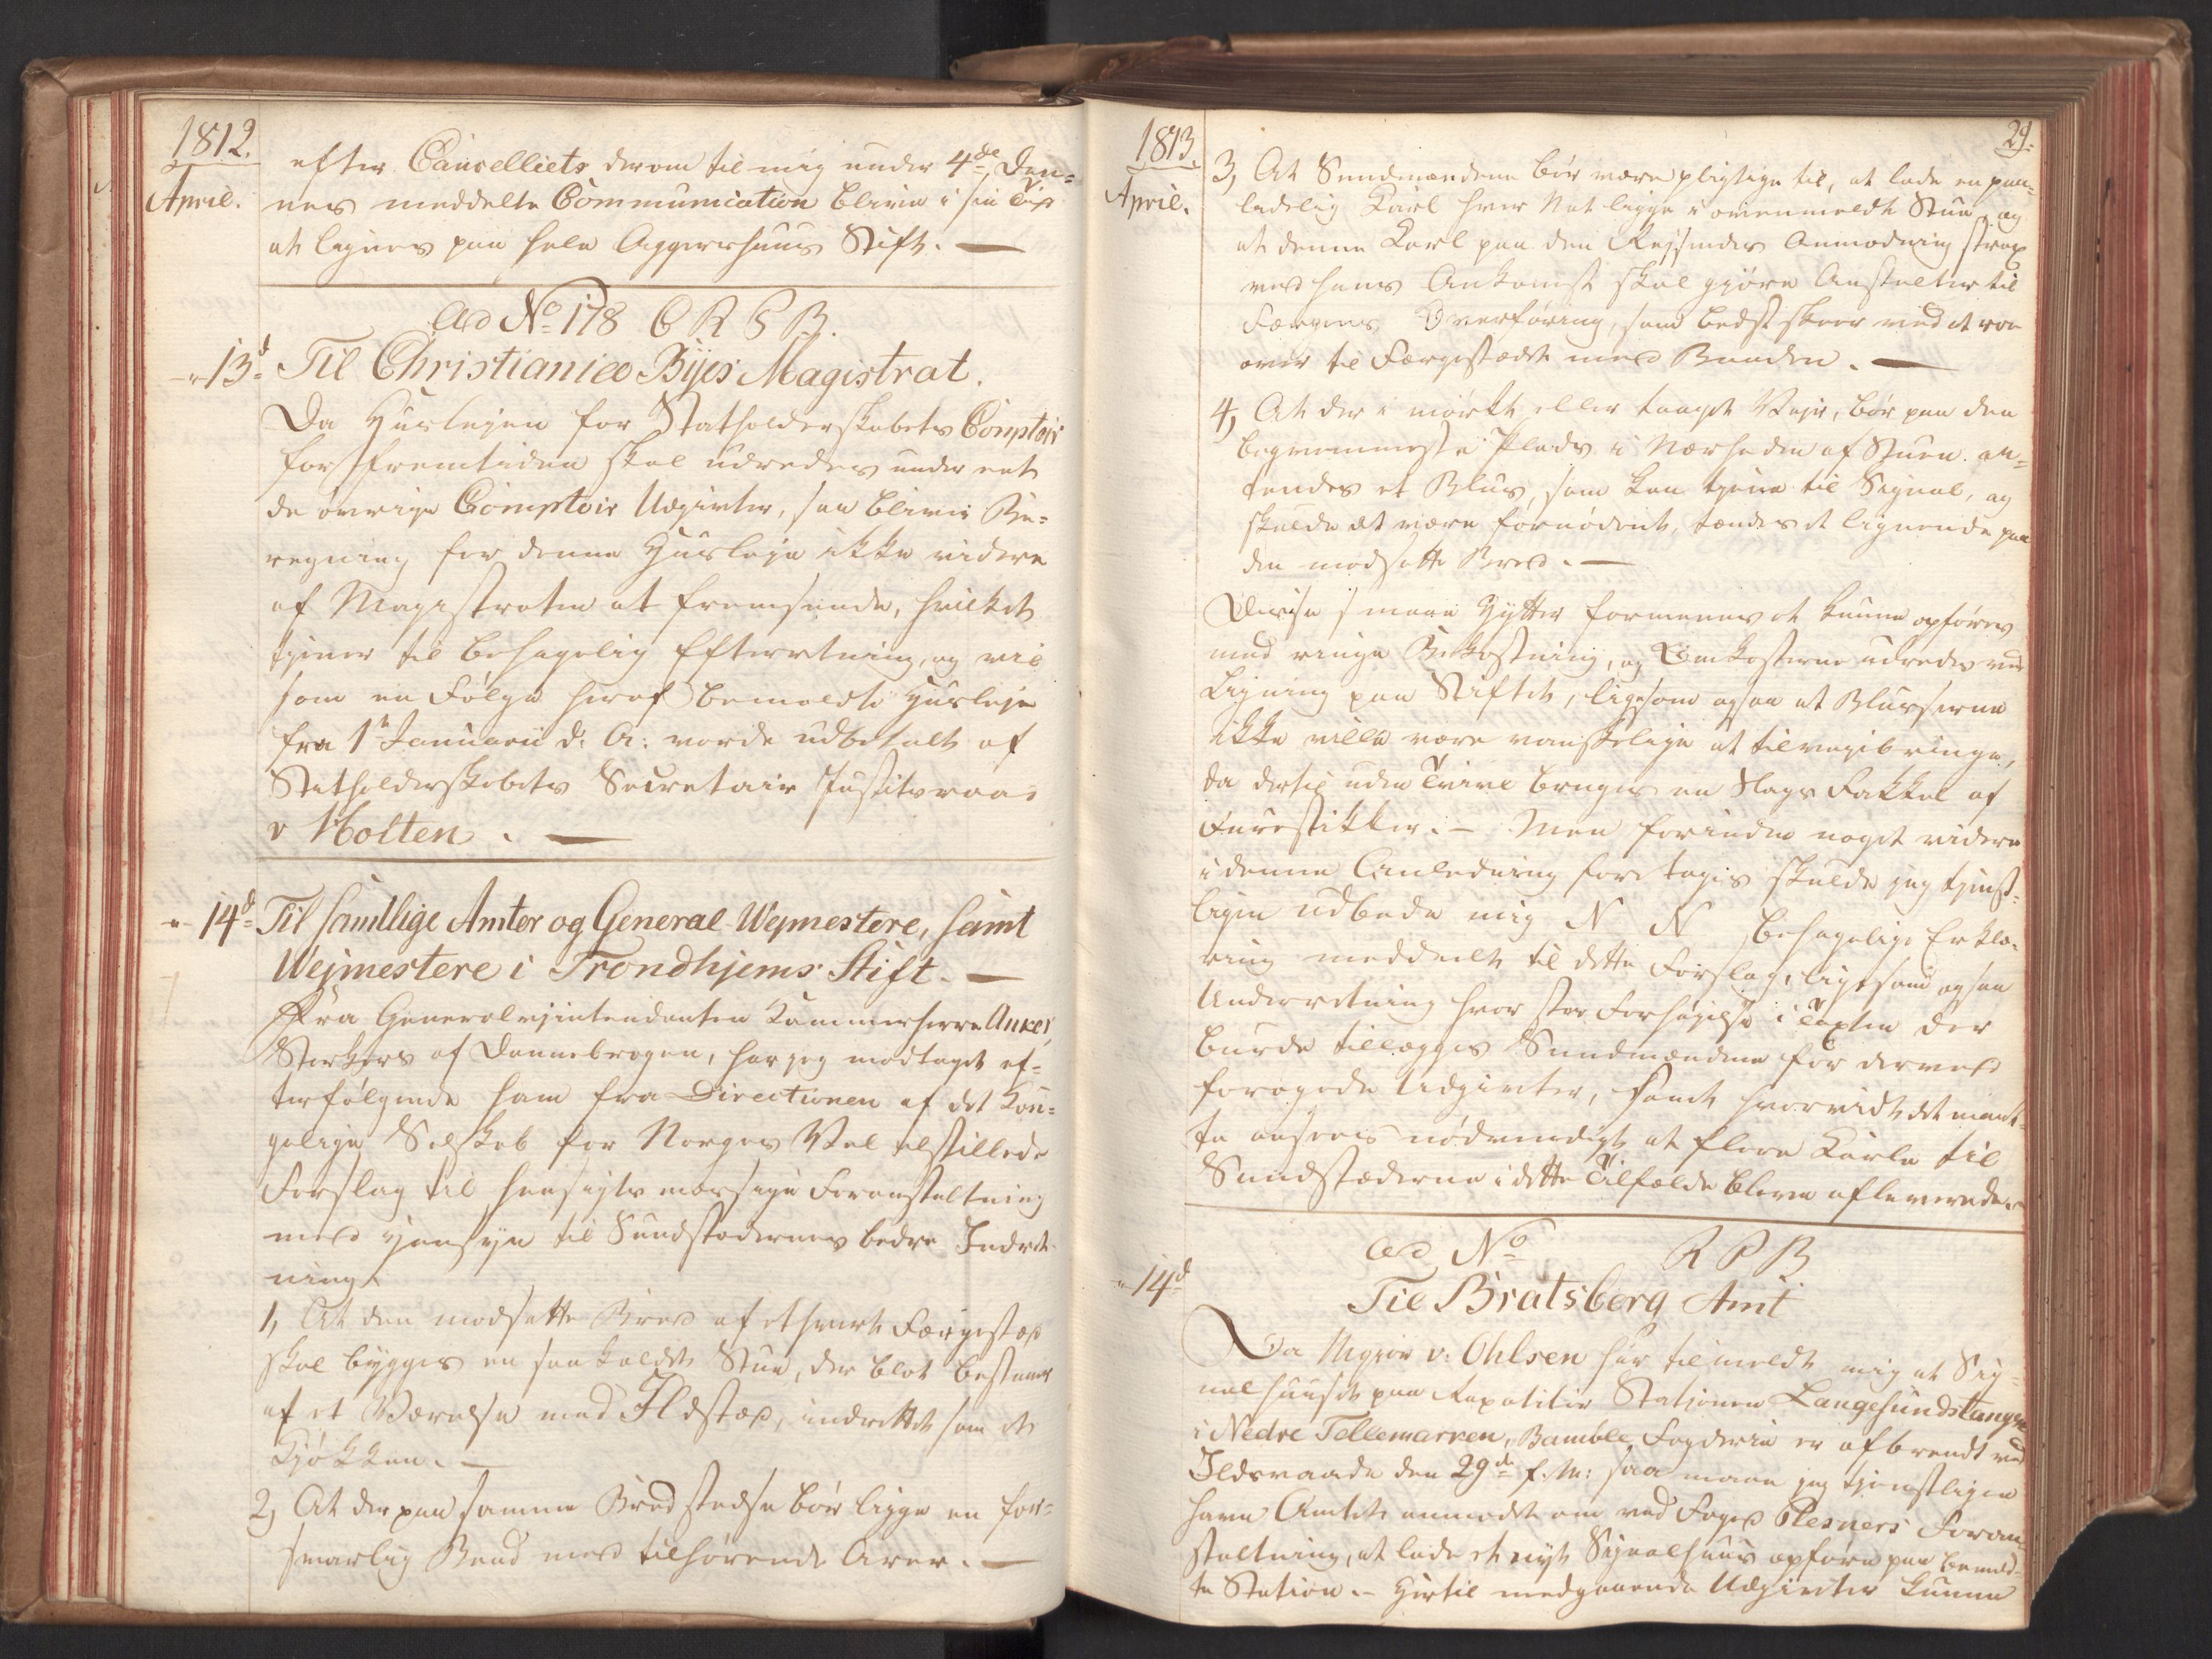 1812.
April.
efter Cancelliets derom til mig under 4de Den-
nes meddelte Communication blive i sin Tid
at lignes paa hele Aggershuus Stift. —
Ad No 178 C R S B.
13d Til Christiania Byes Magistrat.
Da Huslejen for Statholderskabets Comptoir
for Fremtiden skal udredes under eet
de øvrige Comptoir Udgivter, saa bliver Be-
regning for denne Husleje ikke videre
af Magistraten at fremsende, hvilket
tjener til behagelig Efterretning, og vil
som en Følge heraf bemeldte Husleje
fra 1te Januarii d: A: vorde udbetalt af
Statholderskabets Secretair Justitsraad
v Holten. —
14d Til samtlige Amter og General Wejmestere, samt
Wejmestere i Trondhjems Stift. —
Fra Generalvejintendanten Kammerherre Anker,
Storkors af Dannebrogen, har jeg modtaget ef-
terfølgende ham fra Directionen af det Kon-
gelige Selskab for Norges Vel tilstillede
Forslag til hensigtsmæssige Foranstaltning
med Hensyn til Sundstædernes bedre Indret-
ning
1, At den modsatte Bred af ethvert Færgestæd
skal bygges en saa kaldet Stue, der blot bestaaer
af et Værelse med Ildstæd, indrettet som et
Kjøkken. —
2, At der paa samme Bred stedse bør ligge en for-
svarlig Baad med tilhørende Arer. —
1813.
April.
29.
3, At Sundmændene bør være pligtige til, at lade en paa-
lidelig Karl hver Nat ligge i ovenmeldte Stue, og
at denne Karl paa den Rejsendes Anmodning strax
ved hans Ankomst skal gjøre Anstalter til
Færgens Overføring, som bedst skeer ved at roe
over til Færgestædet med Baaden. —
4, At der i mørkt eller taaget Vejr, bør paa den
beqvemmeste Plads i Nærheden af Stuen an-
tændes et Blus, som kan tjene til Signal, og
skulde det være fornødent, tændes et lignende paa
den modsatte Bred. —
Disse smaae Hytter formenes at kunne opføres
med ringe Bekostning, og Omkosterne udredes ved
Ligning paa Stiftet, ligesom ogsaa at Blussene
ikke ville være vanskelige at tilvejebringe,
da dertil uden Tvivl bruges en Slags Fakkel af
Furestikker. — Men forinden noget videre
i denne Anledning foretages skulde jeg tjenst-
ligen udbede mig N N behagelige Erklæ-
ring meddeelt til dette Forslag, ligesom ogsaa
Underretning hvor stor Forhøjelse i Taxten der
burde tillægges Sundmændene for derved
forøgede Udgivter, samt hvorvidt det maat-
te ansees nødvendigt at flere Karle til
Sundstæderne i dette Tilfælde bleve afleverede.
Ad No R P B
14d
Til Bratsberg Amt
Da Major v: Ohlsen har tilmeldt mig at Sig-
nalhuuset paa Repetitør Stationen Langesundstangen
i Nedre Tellemarken, Bamble Fogderie er afbrendt ved
Ildsvaade den 29de f. M: saa maae jeg tjenstligen
have Amtet anmodet om ved Foged Plesners Foran-
staltning, at lade et nyt Signalhuus opføre paa bemeld-
te Station. — Hertil medgaaende Udgivter kunne